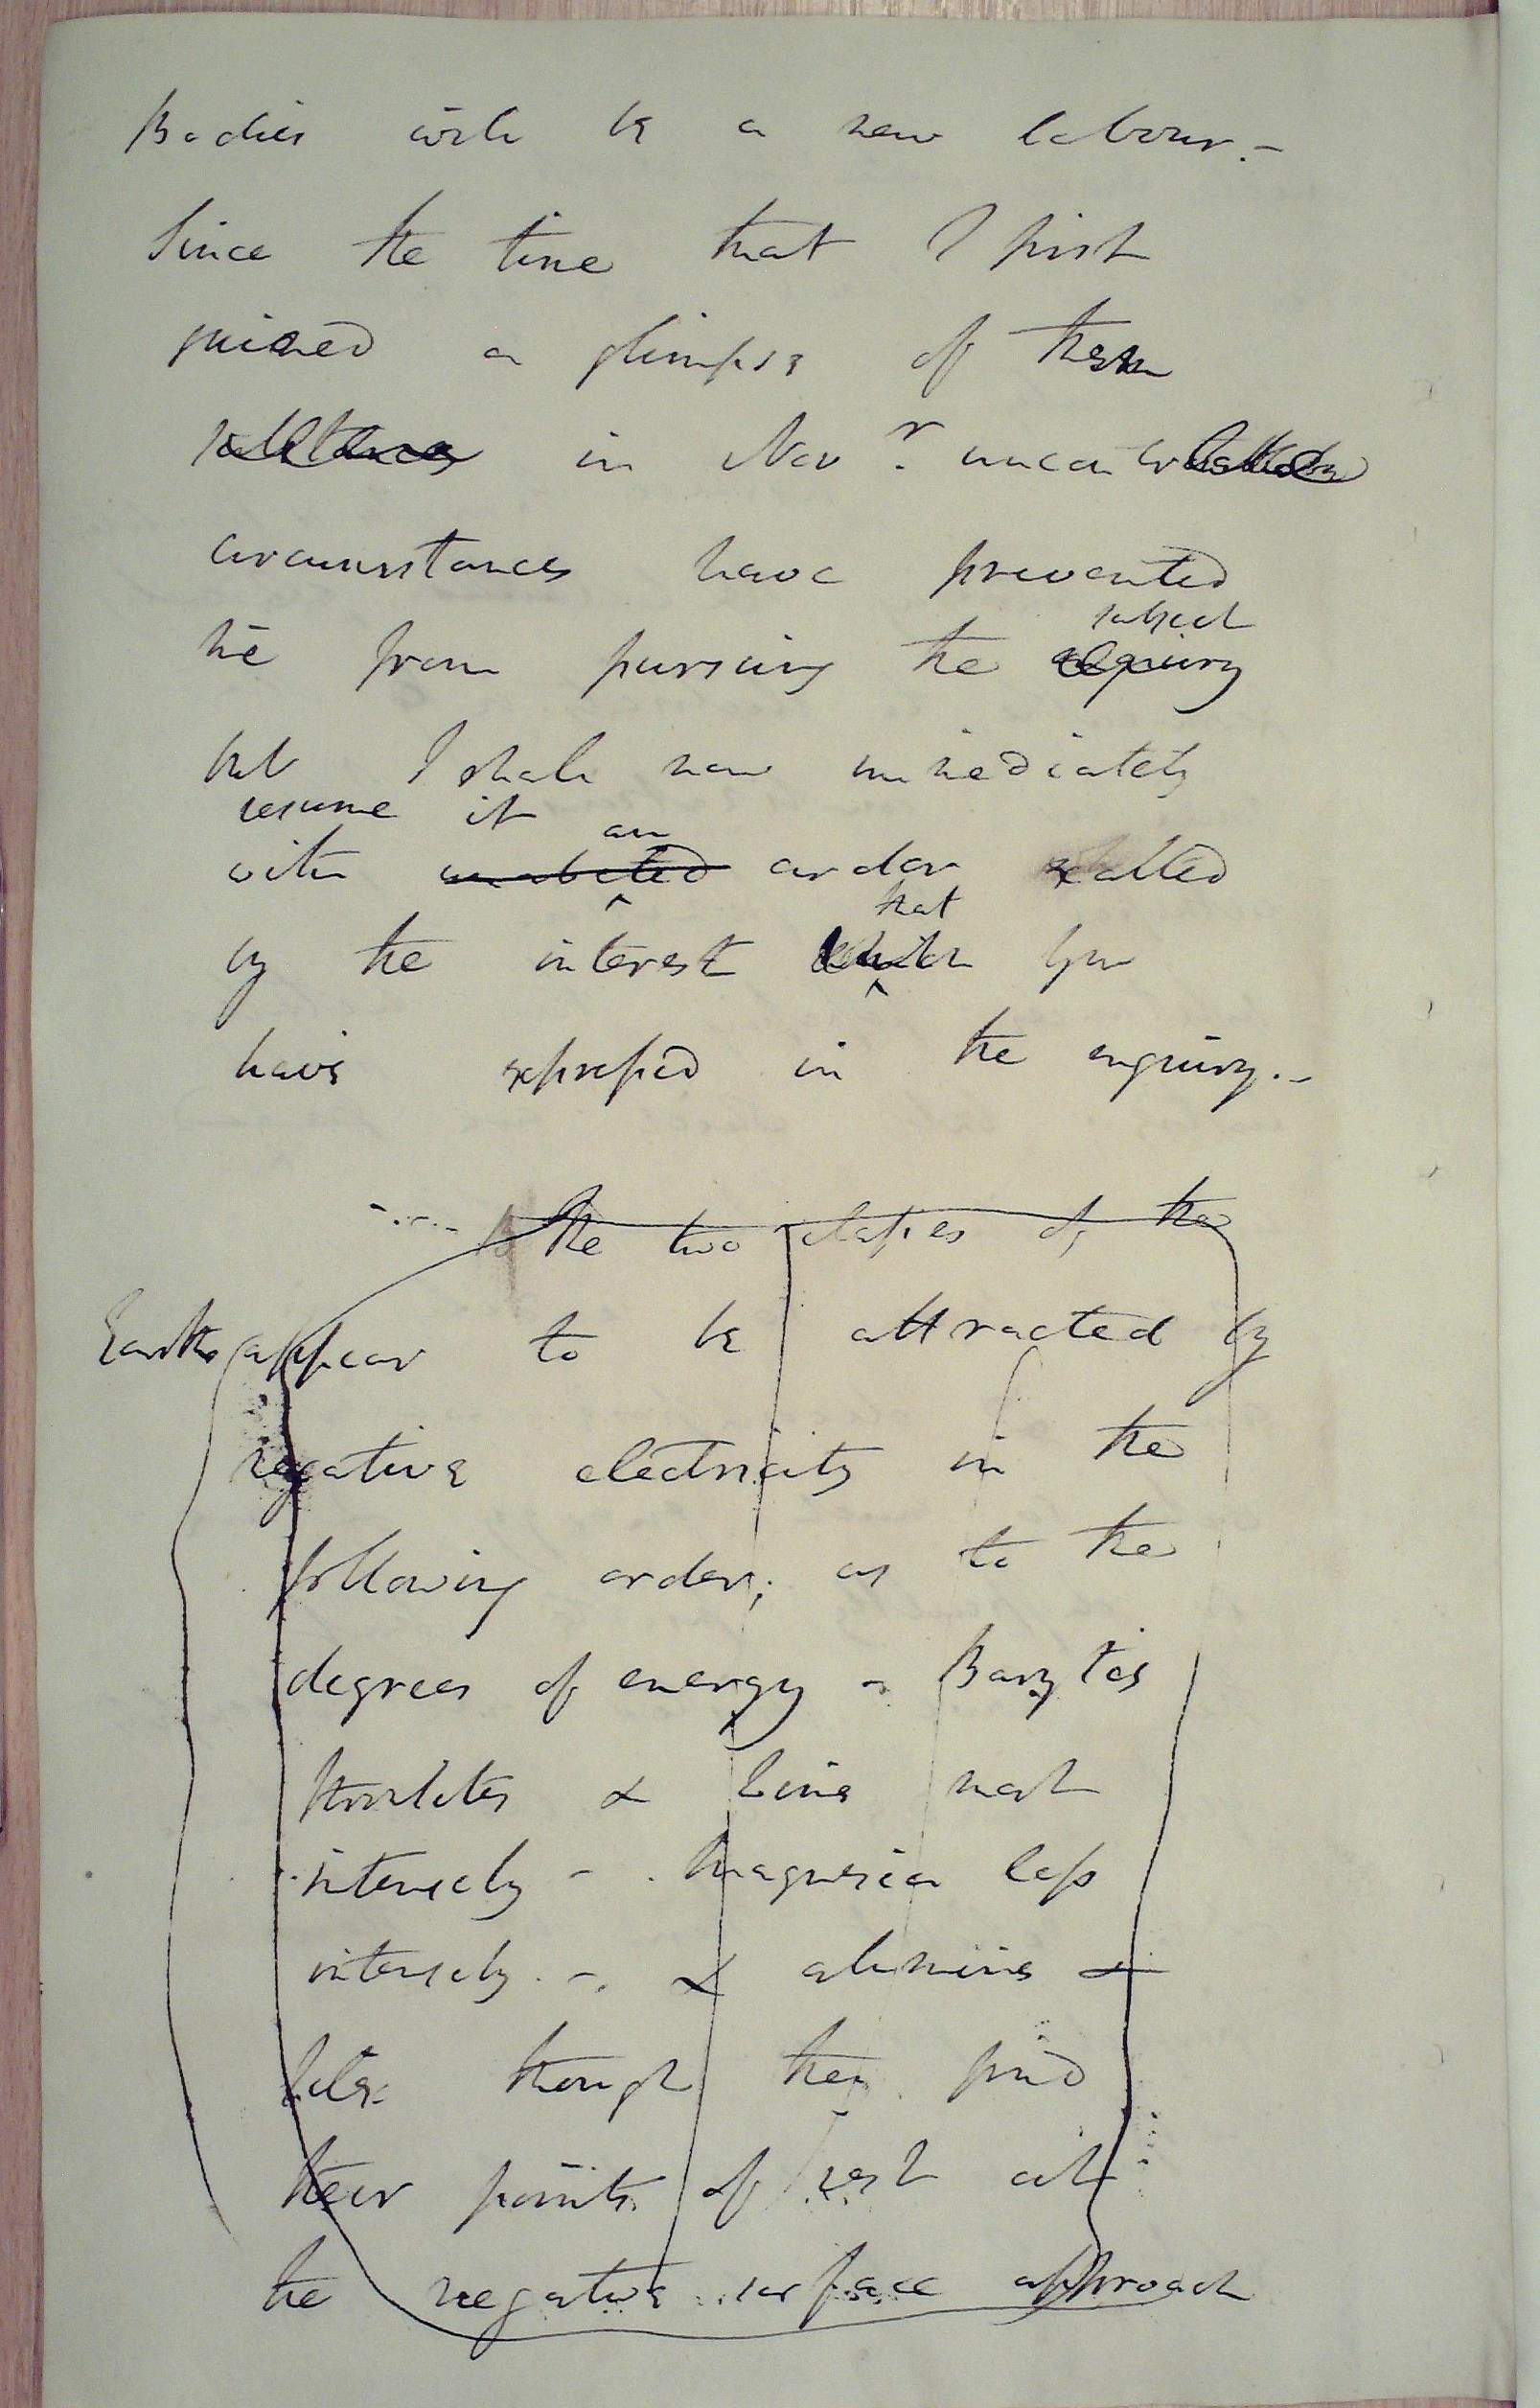 Bodies will be a new labour.-
Since the time that I first
gained a glimpse of them
substances in Nov.r uncontrollable
circumstances have prevented
me from pursuing the enquiry
subject
but I shall now immediately
resume it
with unabated an ardor exalted
by the interest which that you
have expressed in the enquiry.-
the two classes of the
Earths appear to be attracted by
negative electricity in the
following order; as to the
degrees of energy - Barytes
Strontites & lime most
intensely - . Magnesia less
intensely. -. & alumine &
silex though they find
their points of rest at
the negative surface approach